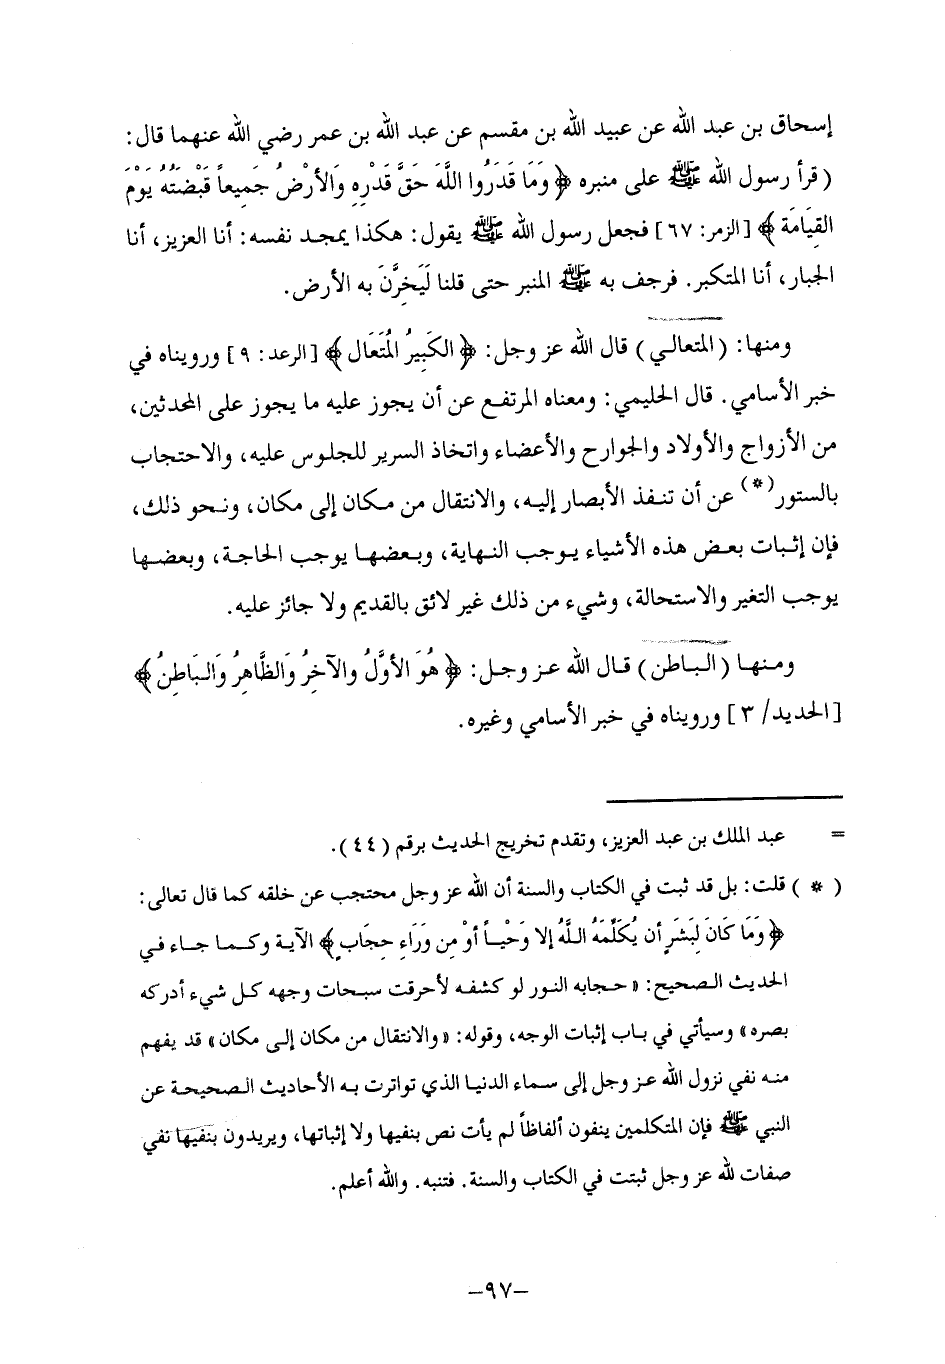 إسحاق بن عبد الله عن عبيد الله بن مقسم عن عبد الله بن عمر رضي الله عنهما قال:
(قرأ رسول الله ﷺ على منبره ﴿وَمَا قَدَرُوا اللَّهَ حَقَّ قَدْرِهِ وَالأرْضُ جَمِيعاً قَبْضَتُهُ يَوْمَ
القِيَامَة﴾ [الزمر: ٦٧] فجعل رسول الله ﷺ يقول: هكذا يمجد نفسه: أنا العزيز، أنا
الجبار، أنا المتكبر. فرجف به ﷺ المنبر حتى قلنا لَيَخِرَّنَ به الأرض.
ومنها: (المتعالي) قال الله عز وجل: ﴿الكَبِيرُ المُتَعَال﴾ [الرعد: ٩] ورويناه في
خبر الأسامي. قال الحليمي: ومعناه المرتفع عن أن يجوز عليه ما يجوز على المحدثين،
من الأزواج والأولاد والجوارح والأعضاء واتخاذ السرير للجلوس عليه، والاحتجاب
بالستور(*) عن أن تنفذ الأبصار إليه، والانتقال من مكان إلى مكان، ونحو ذلك،
فإن إثبات بعض هذه الأشياء يوجب النهاية، وبعضها يوجب الحاجة، وبعضها
يوجب التغير والاستحالة، وشيء من ذلك غير لائق بالقديم ولا جائز عليه.
ومنها (الباطن) قال الله عز وجل: ﴿هُوَ الأوَّلُ والآخِرُ وَالظَّاهِرُ وَالبَاطِنُ﴾
[الحديد/ ٣] ورويناه في خبر الأسامي وغيره.
= عبد الملك بن عبد العزيز، وتقدم تخريج الحديث برقم (٤٤).
(*) قلت: بل قد ثبت في الكتاب والسنة أن الله عز وجل محتجب عن خلقه كما قال تعالى:
﴿وَمَا كَانَ لِبَشَرٍ أن يُكَلِّمَهُ اللَّهُ إلا وَحْياً أوْ مِن وَرَاءِ حِجَابٍ﴾ الآية وكما جاء في
الحديث الصحيح: «حجابه النور لو كشفه لأحرقت سبحات وجهه كل شيء أدركه
بصره» وسيأتي في باب إثبات الوجه، وقوله: «والانتقال من مكان إلى مكان» قد يفهم
منه نفي نزول الله عز وجل إلى سماء الدنيا الذي تواترت به الأحاديث الصحيحة عن
النبي ﷺ فإن المتكلمين ينفون ألفاظاً لم يأت نص بنفيها ولا إثباتها، ويريدون بنفيها نفي
صفات لله عز وجل ثبتت في الكتاب والسنة. فتنبه. والله أعلم.
-٩٧-